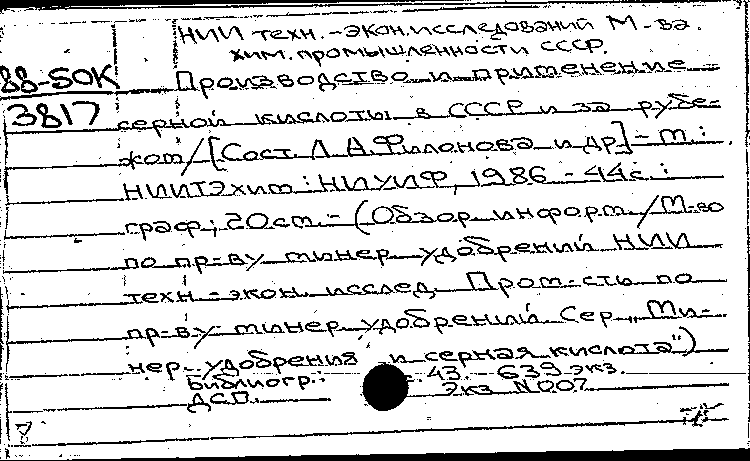 НИИ техн.-экон. исследований М-ва
хим. промышленности СССР.
88-50К Производство и применение
3817 серной кислоты в СССР и за рубе-
жом/[Сост. Л. А. Филонова и др.]-М.:
НИИТЭхим: НИУИФ, 1986.-44с.:
граф.; 20см.-(Обзор. информ./М-во
по пр-ву минер. удобрений НИИ
техн.-экон. исслед. Пром-сть по
пр-ву минер. удобрений. Сер. "Ми-
нер. удобрения и серная кислота")
Библиогр.: с. 43.-639 экз.
ДСП. Экз N007
8